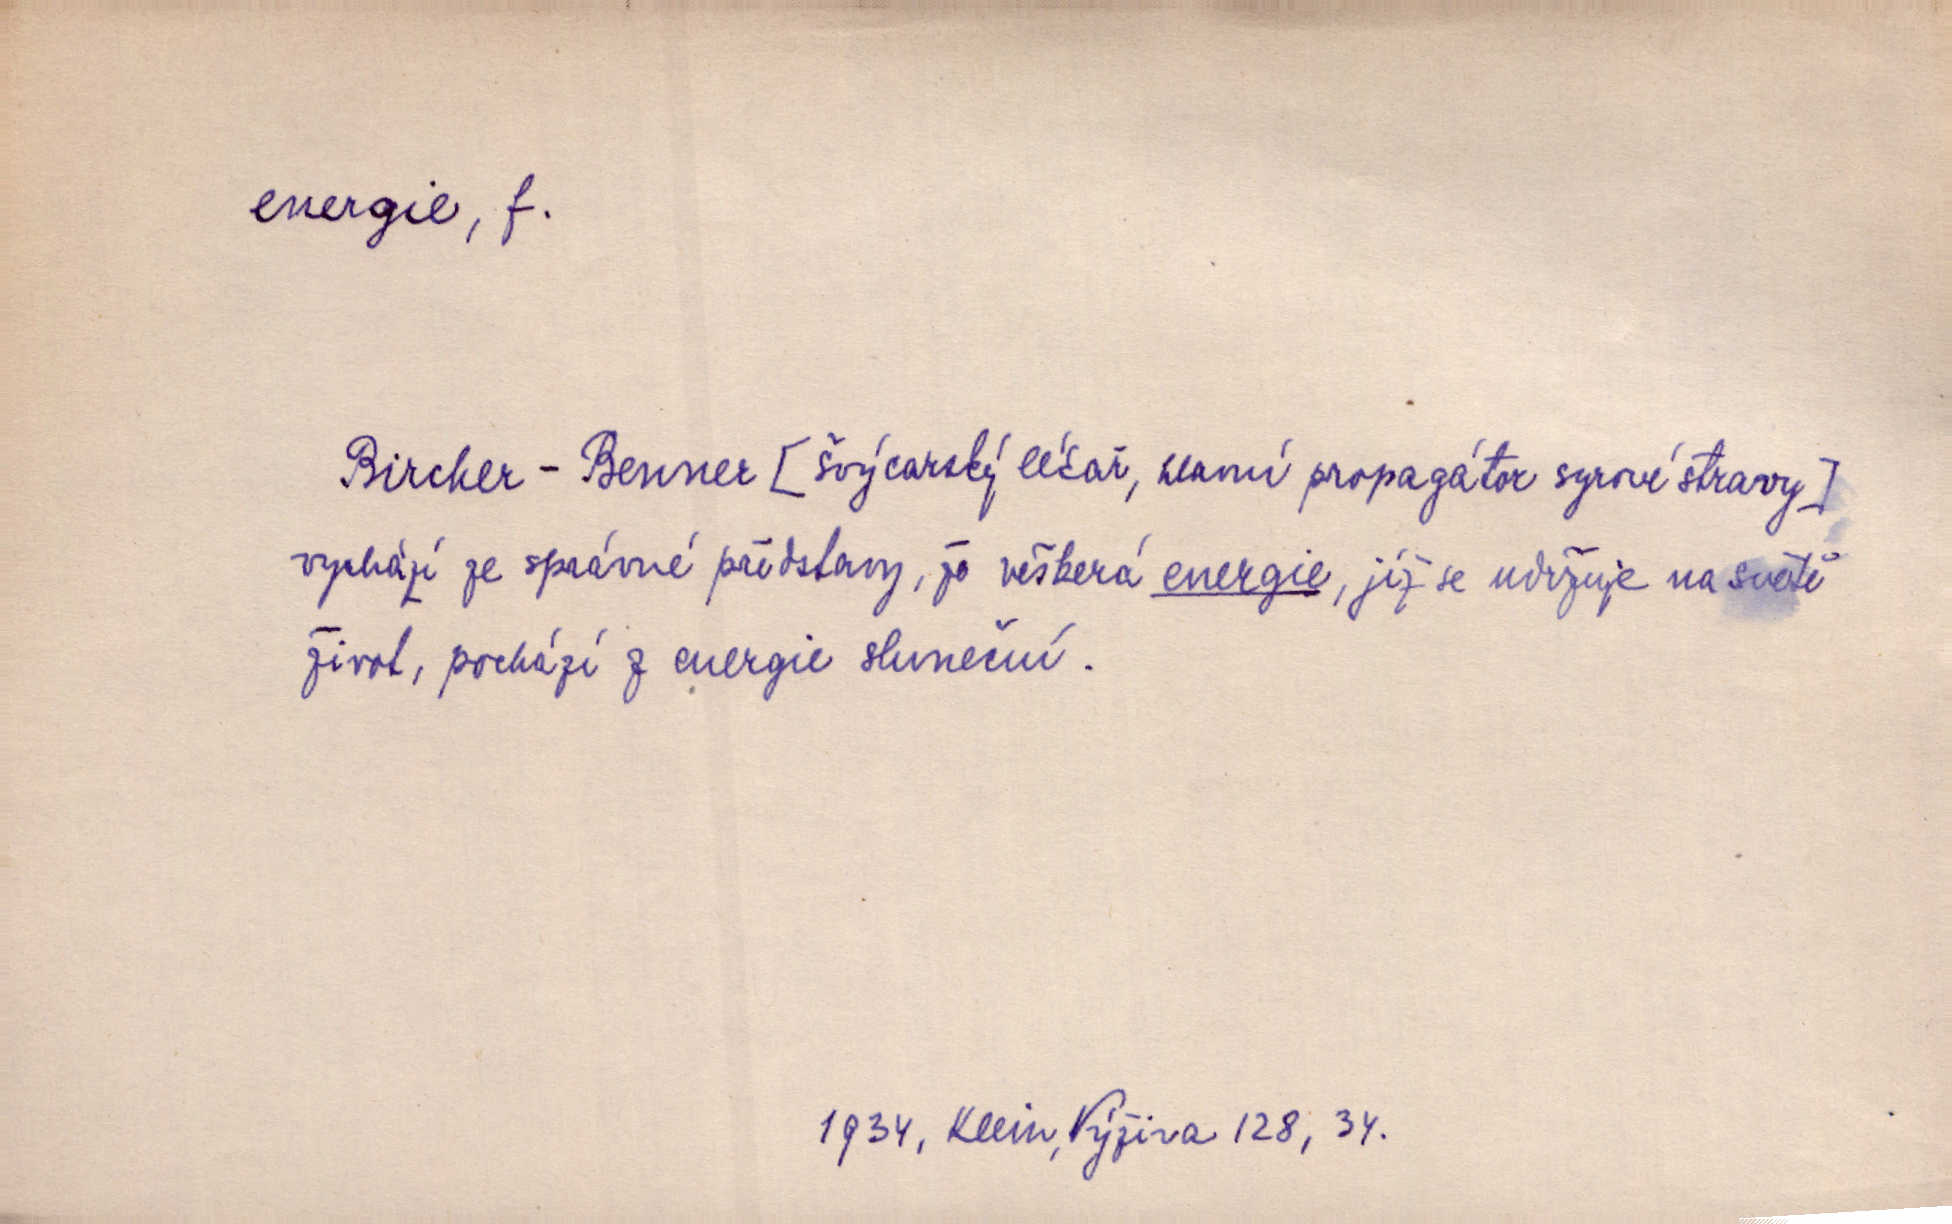 energie, f.
Bircher - Benner [švýcarský lékař, hlavní propagátor syrové stravy]
vychází ze správné představy, že veškerá energie, jíž se udržuje na světě
život, pochází z energie sluneční.
1934, Klein, Výživa 128, 34.